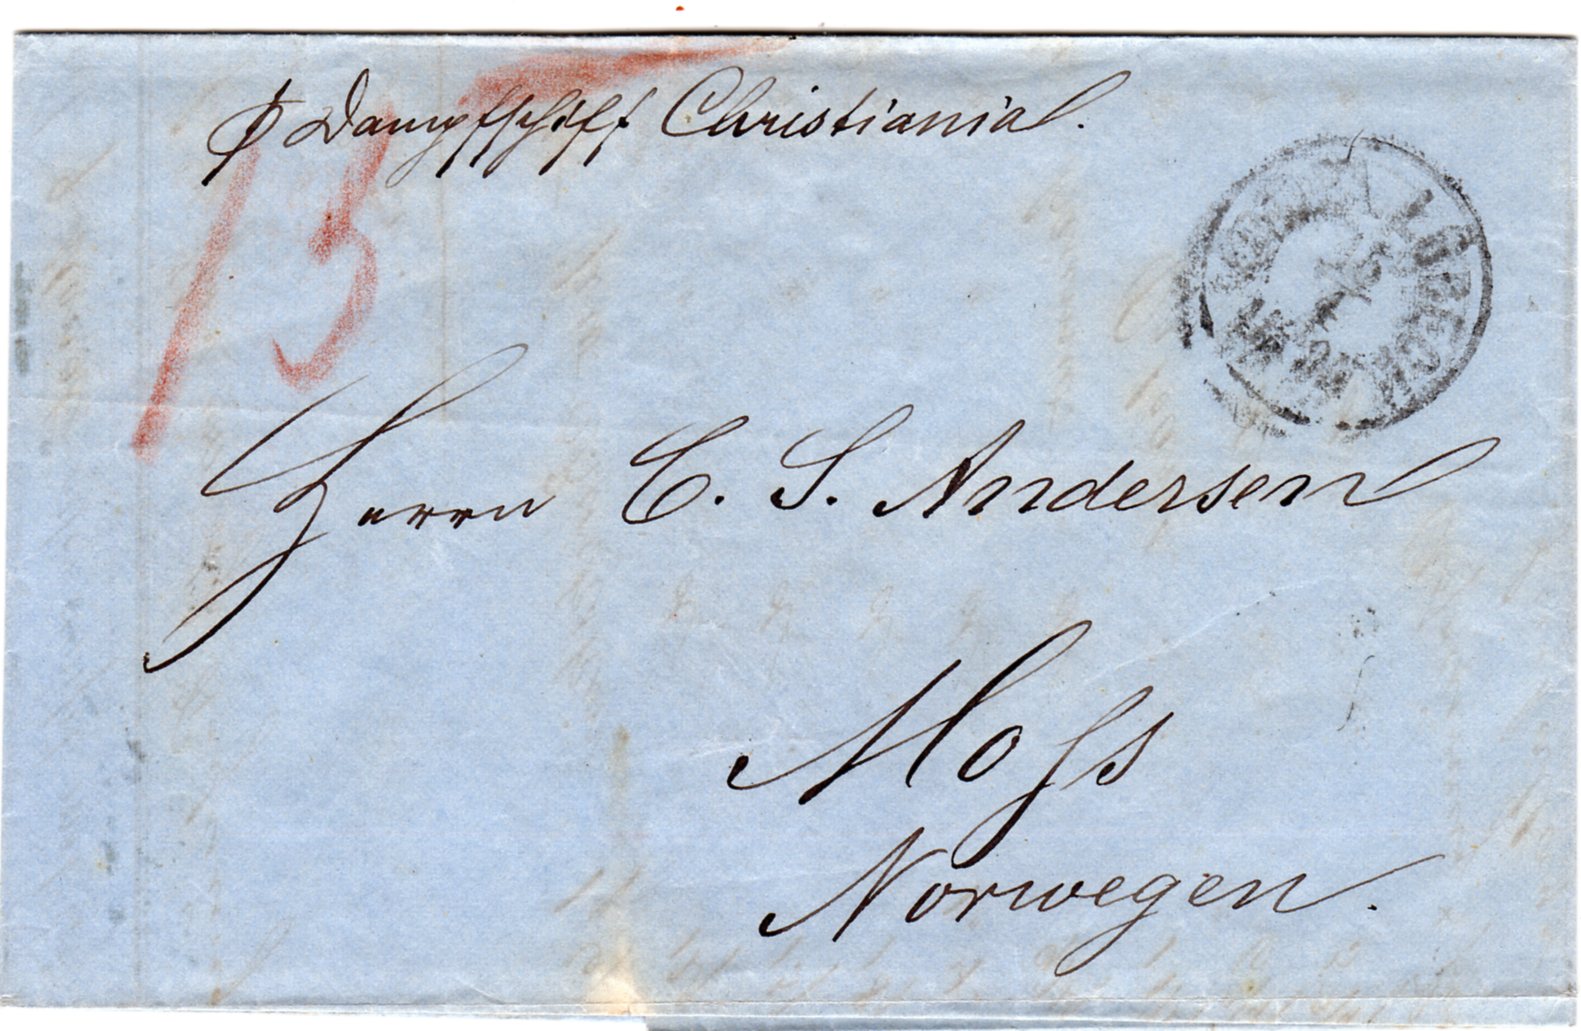 p Dampfschiff Christiania.
15
LÜBECK
Herrn C. S. Andersen
Moſs
Norwegen.